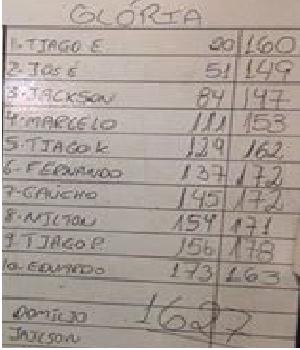 GLÓRIA
1. TJAGO E. 20 160
2. JOSÉ 51 149
3. JACKSON 84 147
4. MARCELO 111 153
5. TJAGO K 129 162
6. FERNANDO 137 172
7. GAÚCHO 145 172
8. NILTON 154 171
9. TJAGO P. 156 178
10. EDUARDO 173 163
1627
JAILSON